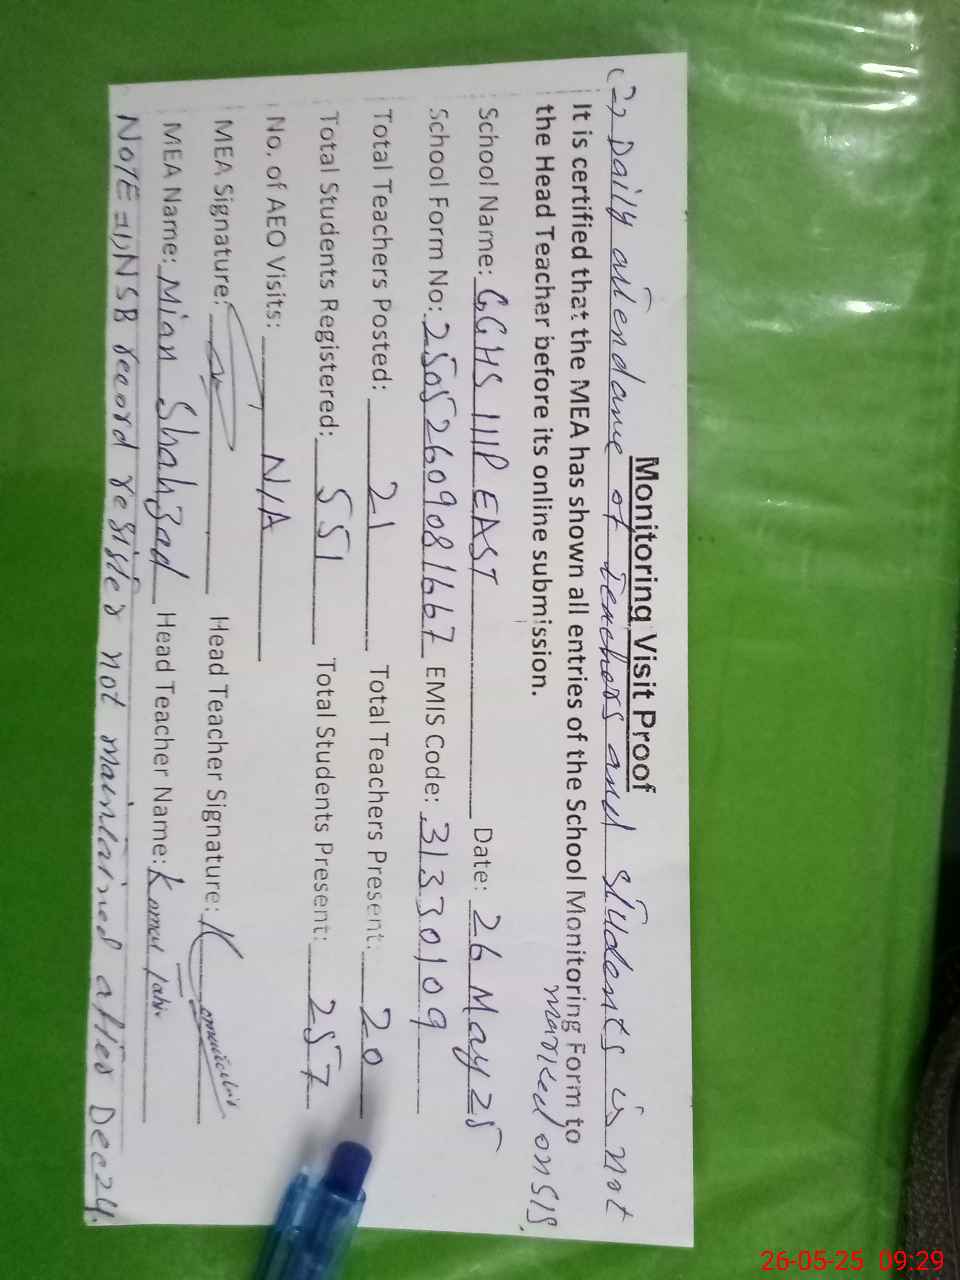 Monitoring Visit Proof
(2) Daily attendance of teachers and students is not
marked on SIS.
It is certified that the MEA has shown all entries of the School Monitoring Form to
the Head Teacher before its online submission.
School Name: GGHS 111P EAST Date: 26 May 25
School Form No: 25052609081667 EMIS Code: 31330109
Total Teachers Posted: 21 Total Teachers Present: 20
Total Students Registered: 551 Total Students Present: 257
No. of AEO Visits: N/A
MEA Signature: Head Teacher Signature:
MEA Name: Mian Shahzad Head Teacher Name: Komal
NoTE =1) NSB record resister not maintained after Dec 24.
26-05-25 09:29